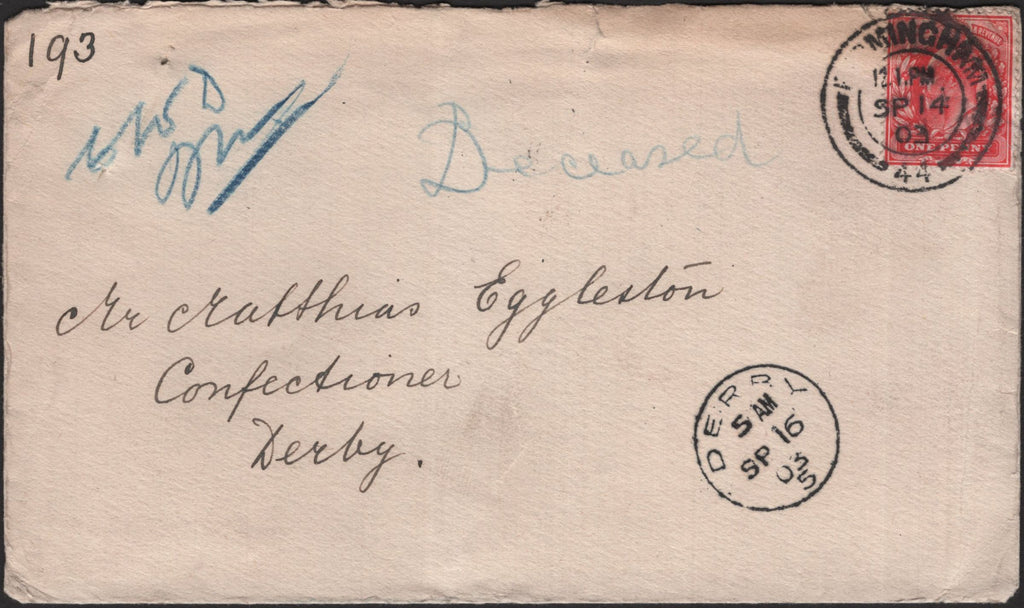 193
Deceased
BIRMINGHAM
12 1 PM
SP 14
03
44
ONE PENNY
Mr Matthias Eggleston
Confectioner
Derby.
DERRY
5 AM
SP 16
03
5